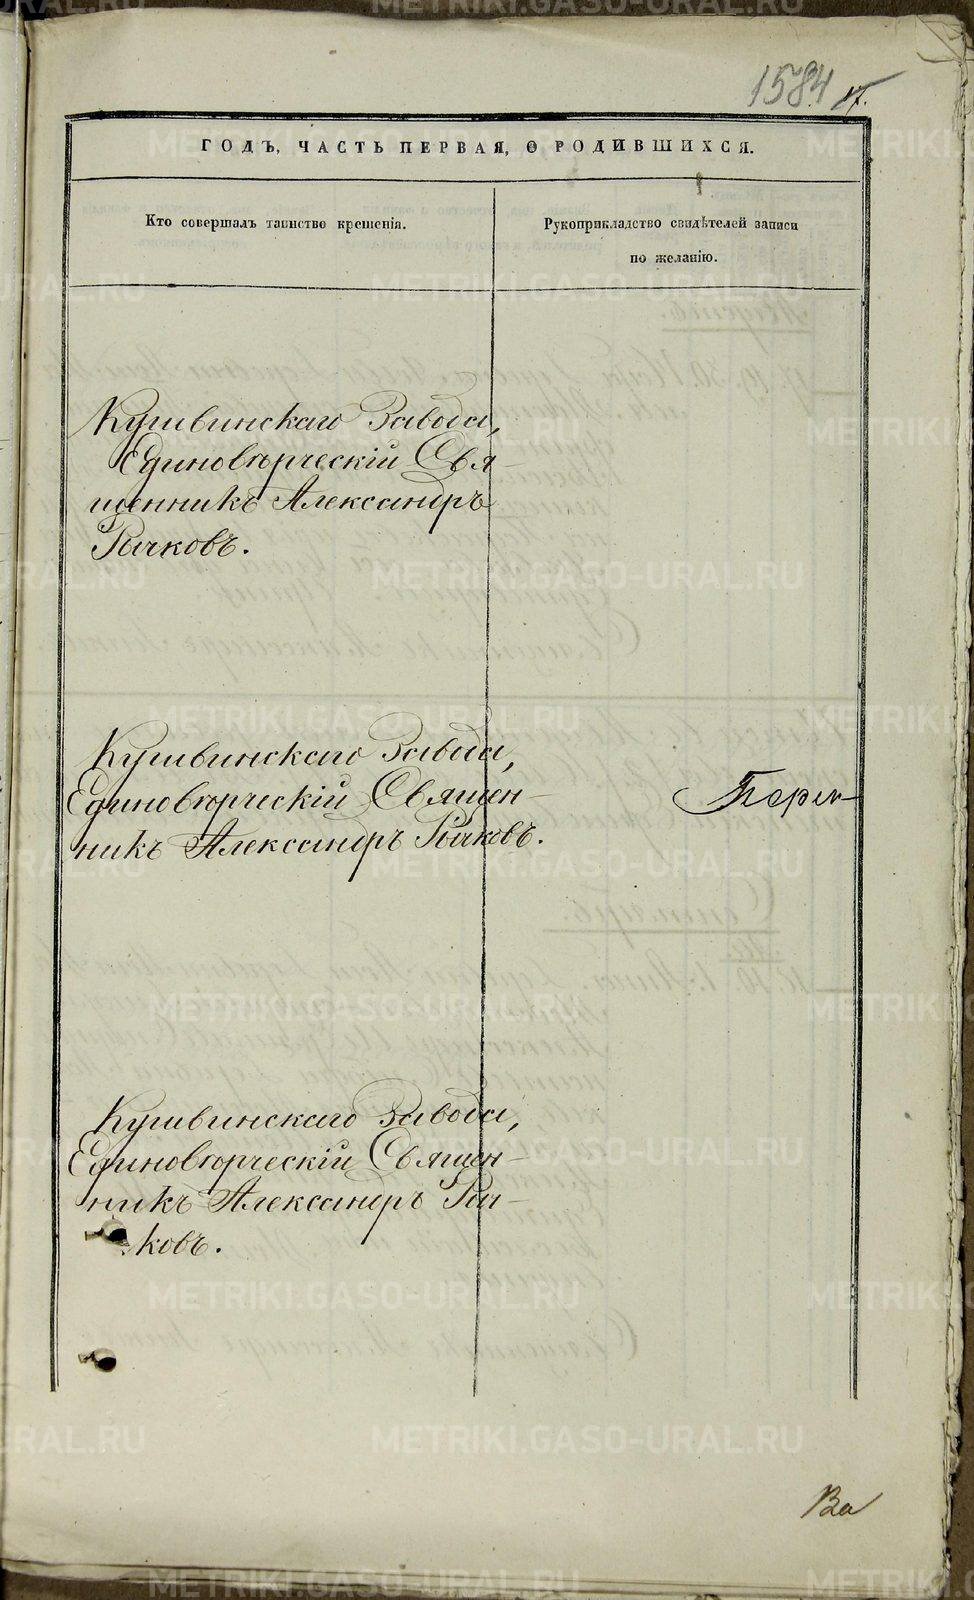 1584 17.
ГОДЪ, ЧАСТЬ ПЕРВАЯ, О РОДИВШИХСЯ.
Кто совершалъ таинство крещенія.
Рукоприкладство свидѣтелей записи
по желанію.
Кушвинскаго Завода,
Единовѣрческій Свя-
щенникъ Александръ
Рычковъ.
Кушвинскаго Завода,
Единовѣрческій Священ-
никъ Александръ Рычковъ.
Кушвинскаго Завода,
Единовѣрческій Священ-
никъ Александръ Рыч-
ковъ.
METRIKI.GASO-URAL.RU